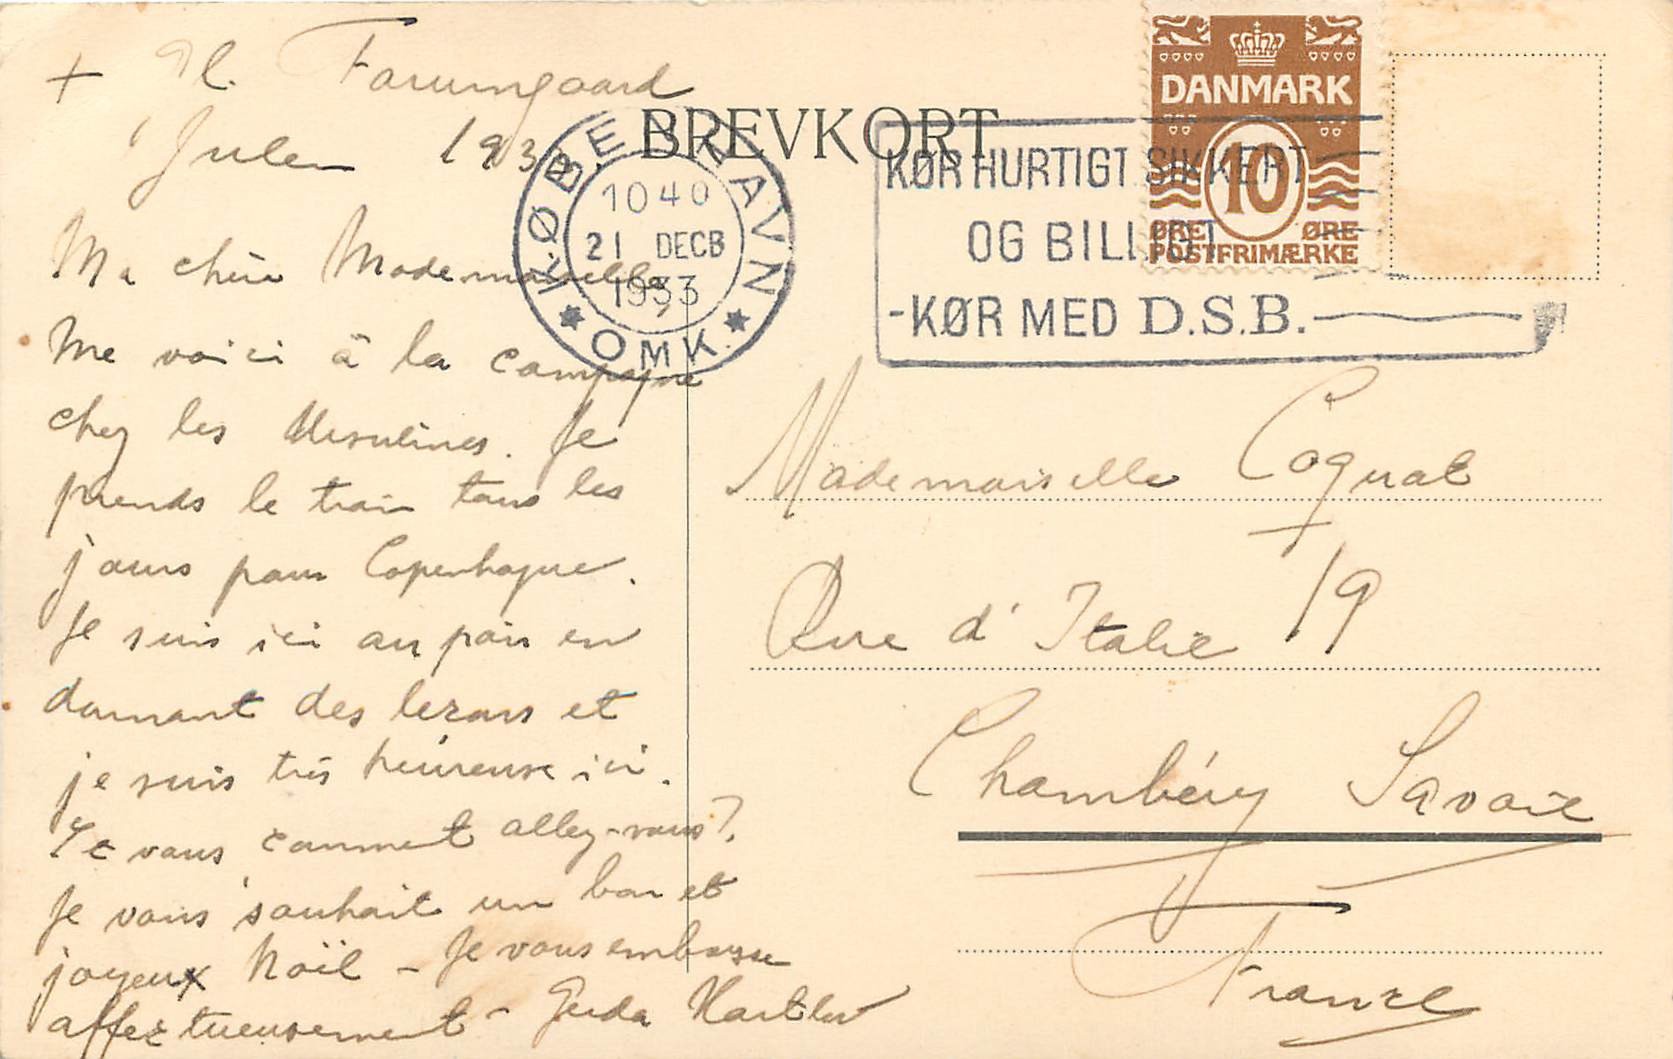 + Gl. Farumgaard
Julen 1933.
Ma chère Mademoiselle,
Me voici à la campagne
chez les Ursulines. Je
prends le train tous les
jours pour Copenhague.
Je suis ici au pair en
donnant des leçons et
je suis très heureuse ici.
Et vous comment allez-vous?
Je vous souhait un bon et
joyeux Noïl - Je vous embrasse
affectueusement - Gerda
BREVKORT
KØBENHAVN
1040
21 DECB
1933
* OMK. *
KØR HURTIGT SIKKERT
OG BILLIGT
-KØR MED D.S.B.
DANMARK
10
ØRE ØRE
POSTFRIMÆRKE
Mademoiselle Coquat
Rue d'Italie 19
Chambéry Savoie
France